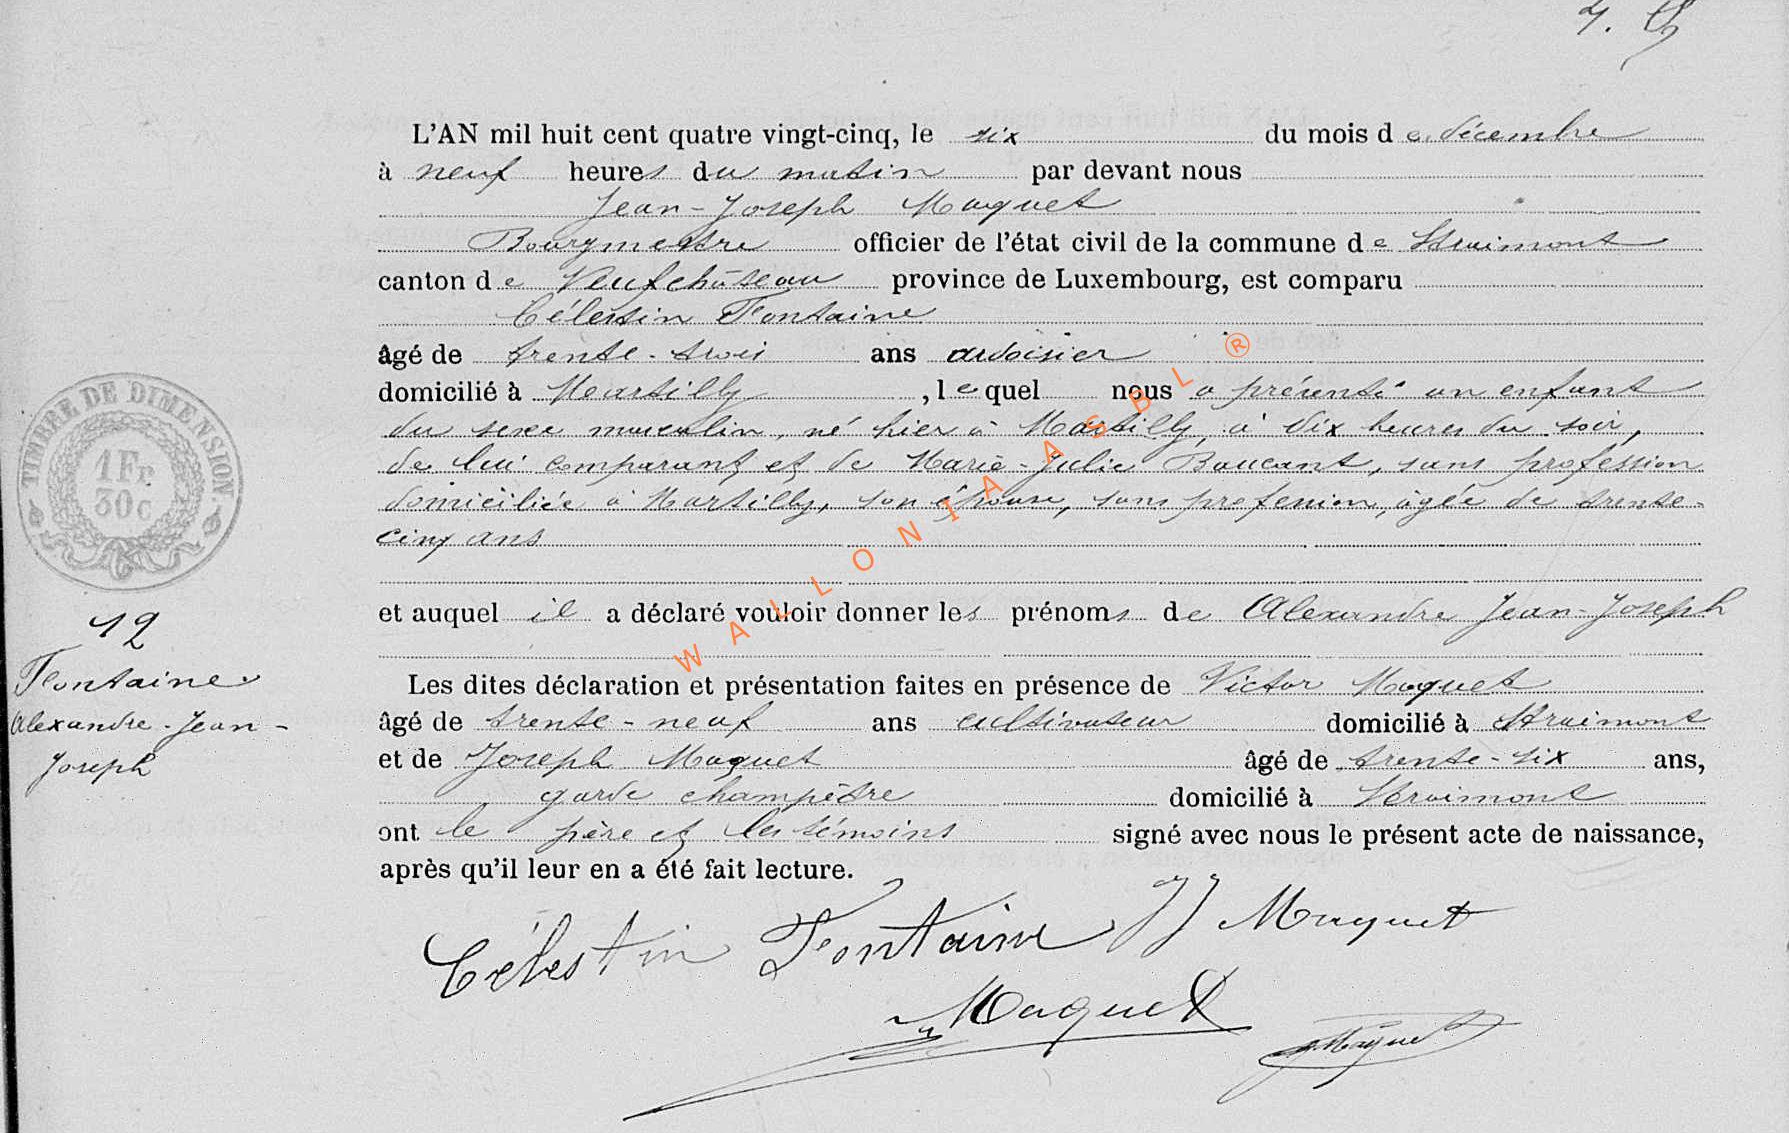 7.
L'AN mil huit cent quatre vingt-cinq, le six du mois de décembre
à neuf heures du matin par devant nous
Jean-Joseph Maquet
Bourgmestre officier de l'état civil de la commune de Straimont
canton de Neufchâteau province de Luxembourg, est comparu
Célestin Fontaine
âgé de trente-trois ans ardoisier
domicilié à Martilly, lequel nous a présenté un enfant
du sexe masculin, né hier à Martilly, à dix heures du soir,
de lui comparant et de Marie-Julie Baucant, sans profession
domiciliée à Martilly, son épouse, sans profession, âgée de trente-
cinq ans
et auquel il a déclaré vouloir donner les prénoms de Alexandre Jean-Joseph
Les dites déclaration et présentation faites en présence de Victor Maquet
âgé de trente-neuf ans cultivateur domicilié à Straimont
et de Joseph Maquet âgé de trente-six ans,
garde champêtre domicilié à Straimont
ont le père et les témoins signé avec nous le présent acte de naissance,
après qu'il leur en a été fait lecture.
Célestin Fontaine JJ Maquet
Maquet
Maquet
TIMBRE DE DIMENSION.
1 Fr.
30c
12
Fontaine
Alexandre-Jean-
Joseph
WALLONIA ASBL ®